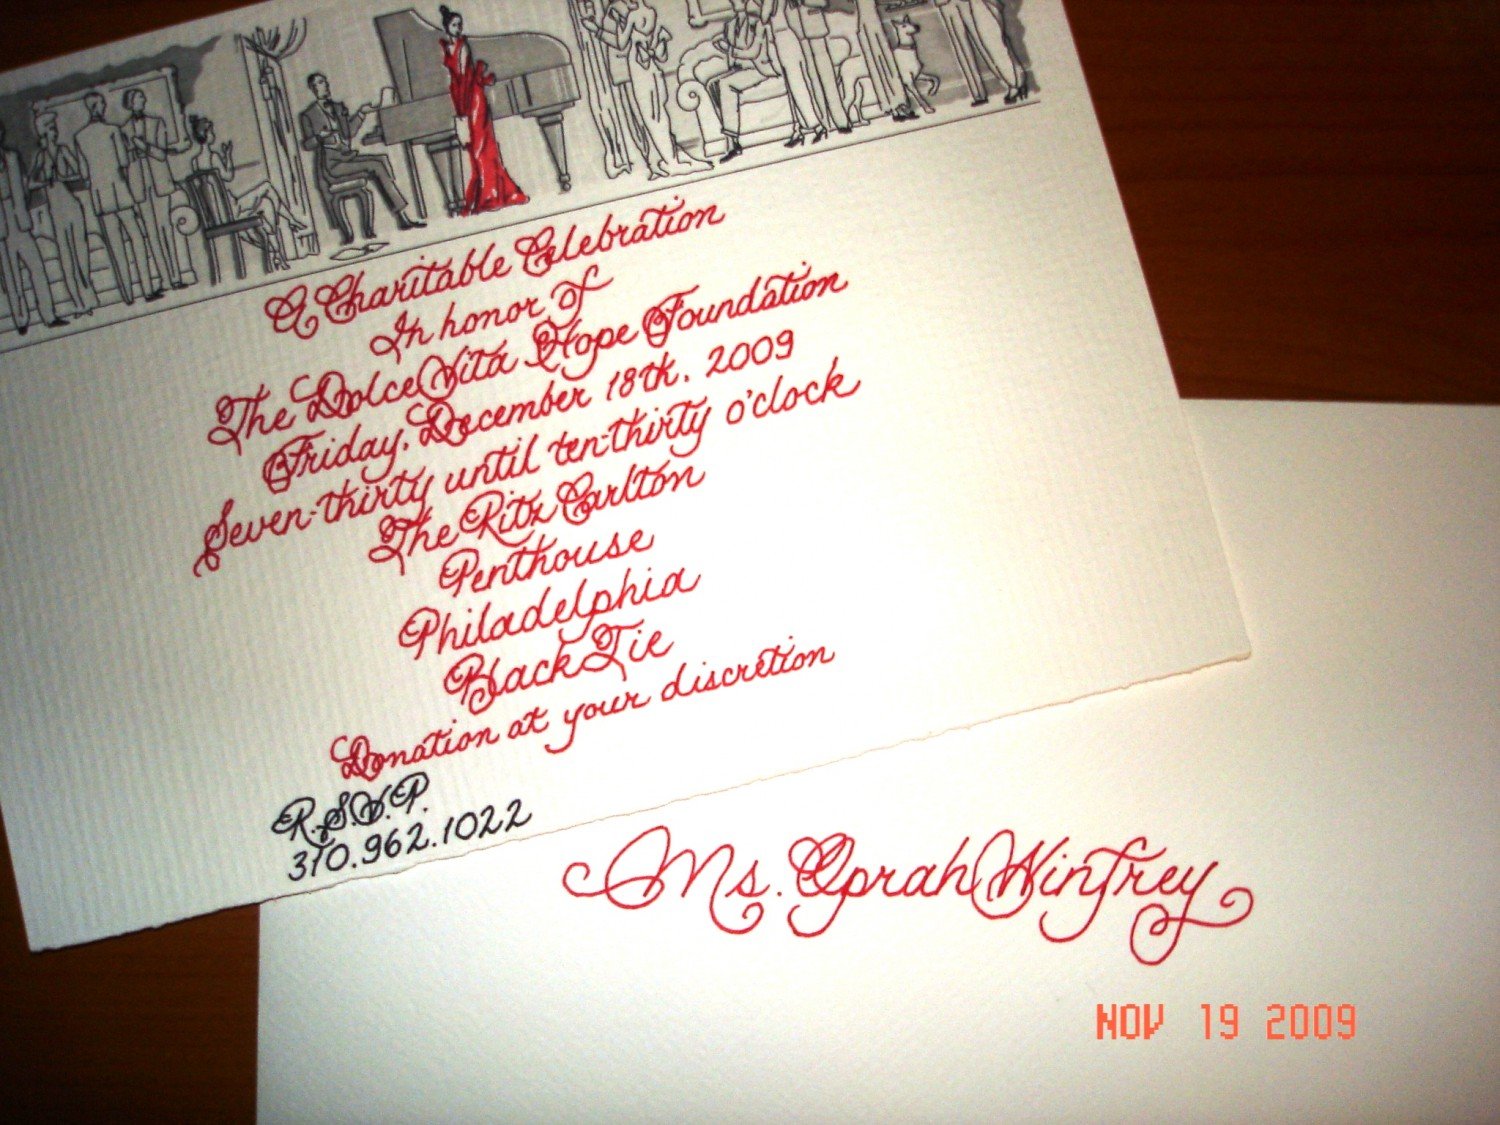 A Charitable Celebration
In honor of
The Dolce Vita Hope Foundation
Friday, December 18th, 2009
Seven-thirty until ten-thirty o'clock
The Ritz Carlton
Penthouse
Philadelphia
Black Tie
Donation at your discretion
R.S.V.P.
310.962.1022
Ms. Oprah Winfrey
NOV 19 2009